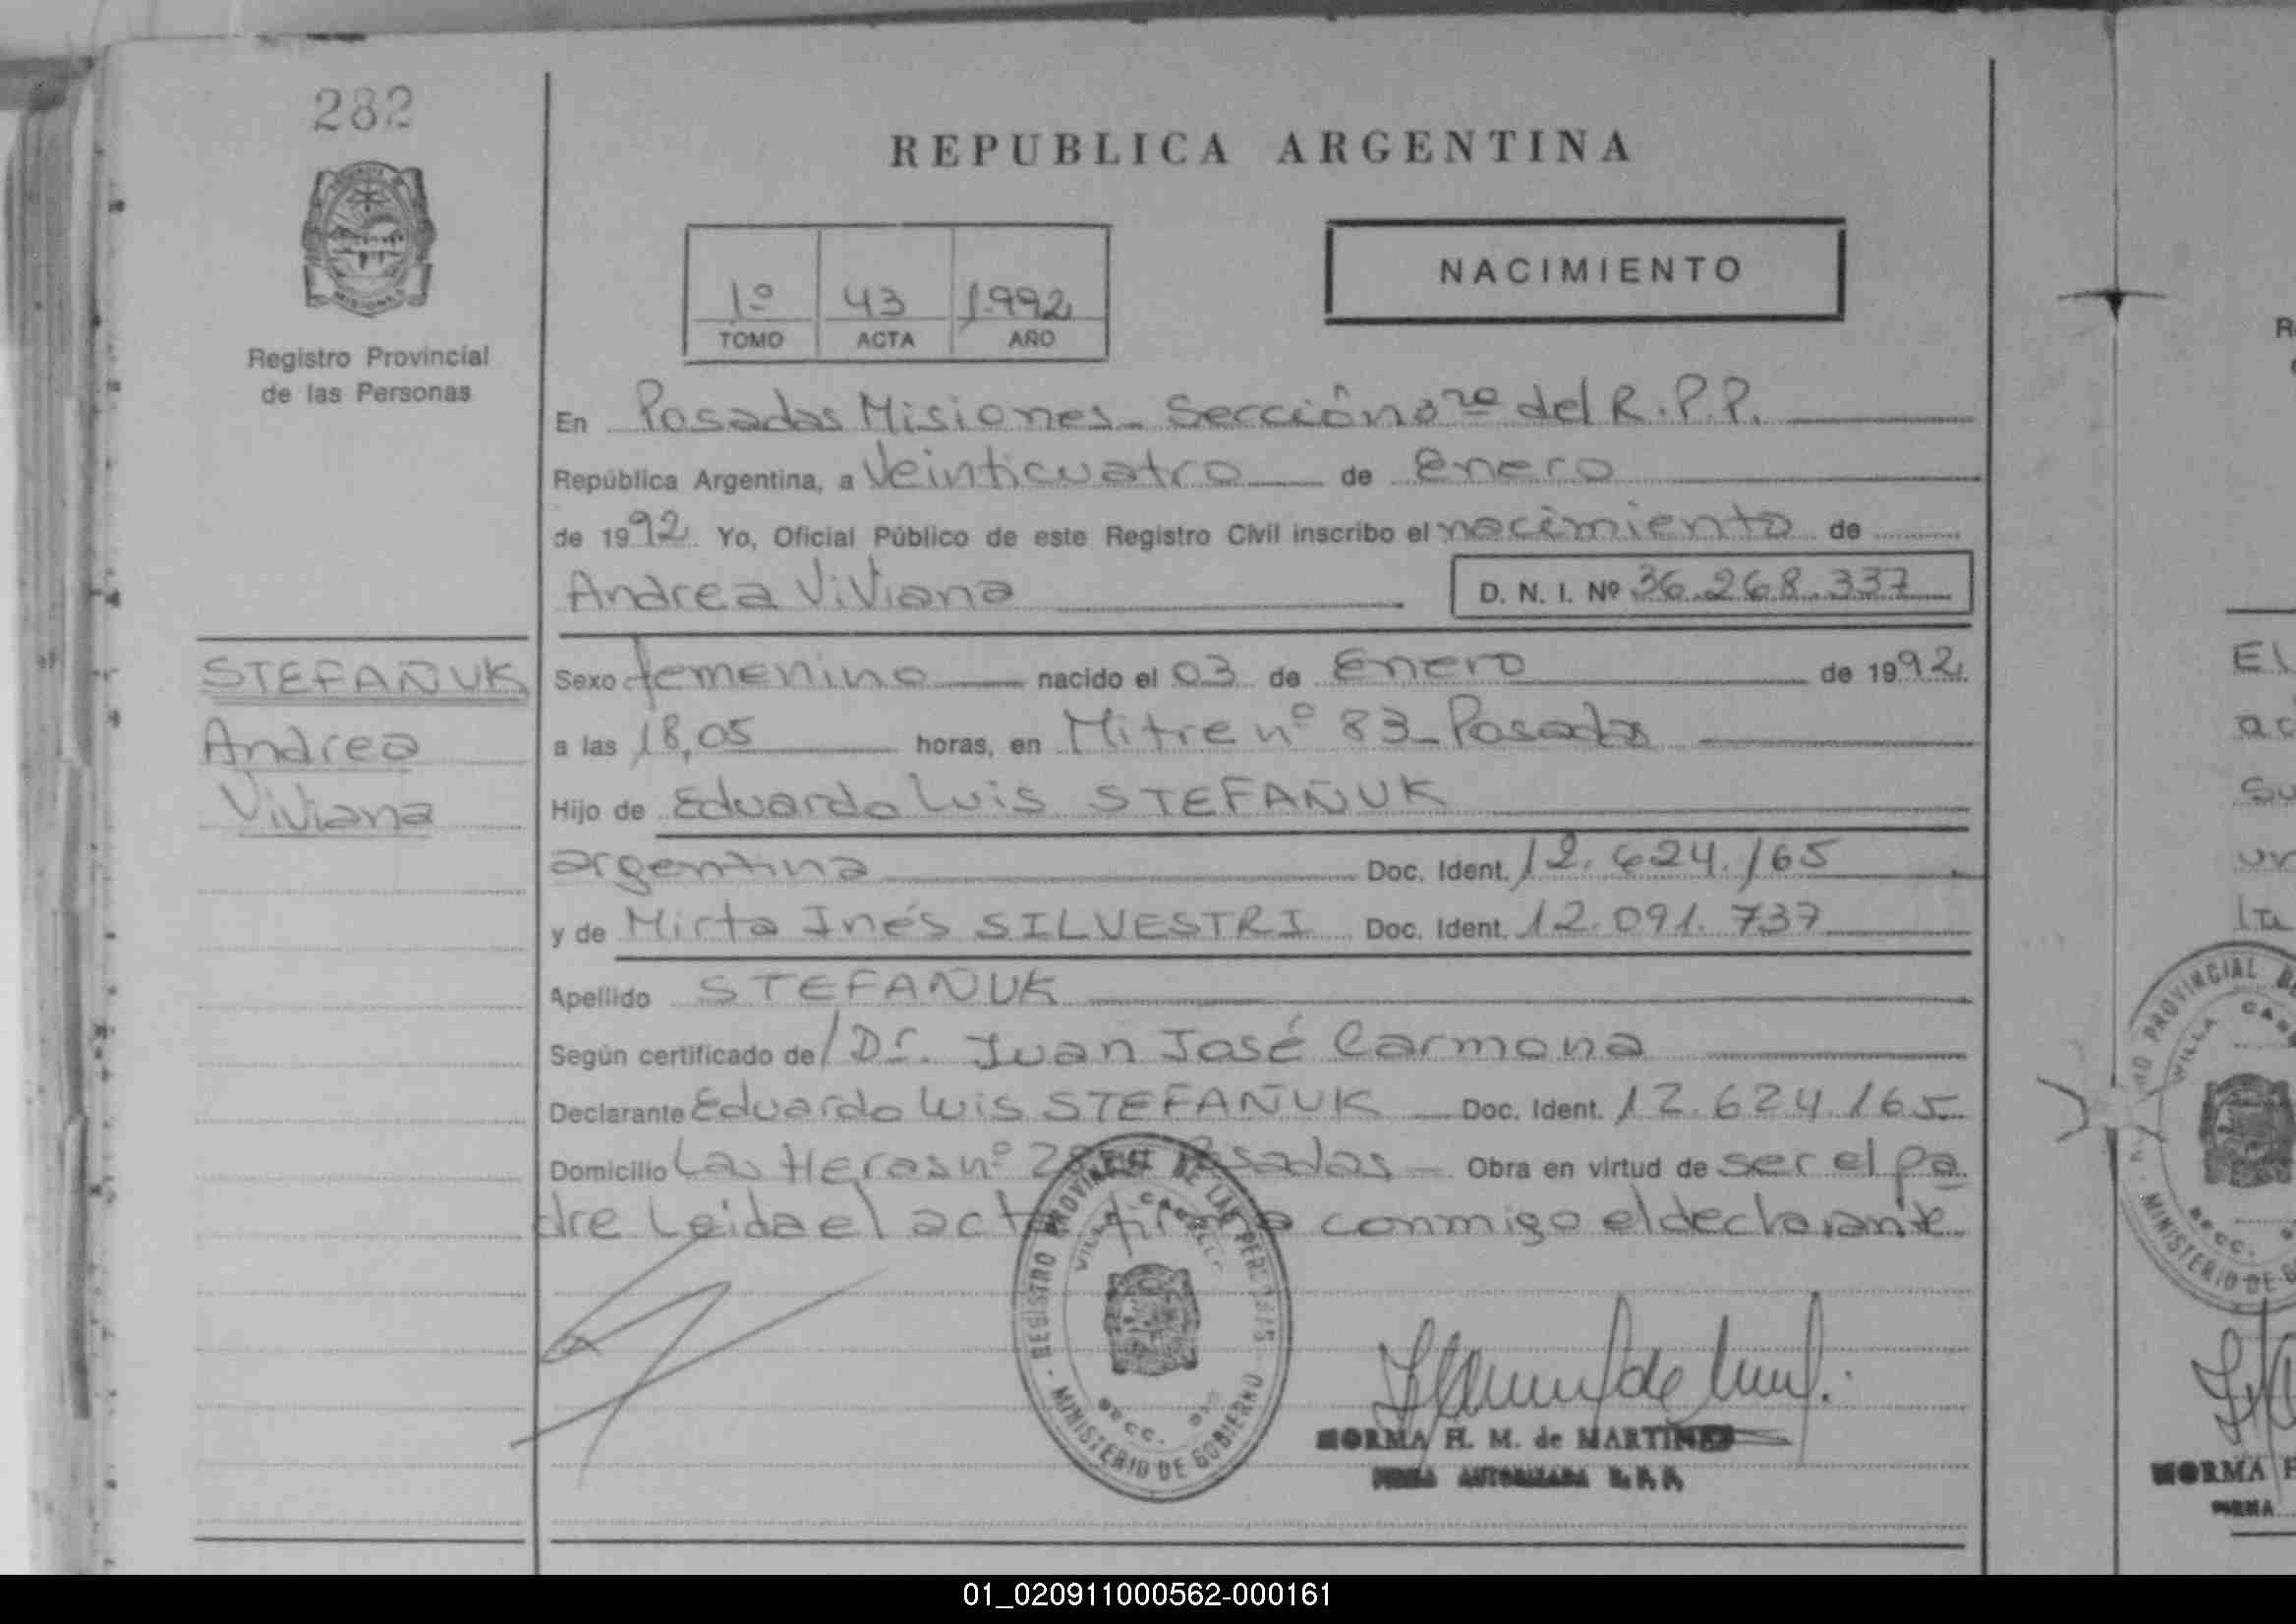 282
REPUBLICA ARGENTINA
NACIMIENTO
1º 43 1.992
TOMO ACTA AÑO
Registro Provincial
de las Personas
En Posadas Misiones - Sección 3ra del R.P.P.
República Argentina, a Veinticuatro de Enero
de 1992 Yo, Oficial Público de este Registro Civil inscribo el nacimiento de
Andrea Viviana D. N. I. Nº 36.268.337
STEFAÑUK
Andrea
Viviana
Sexo femenino nacido el 03 de Enero de 1992
a las 18,05 horas, en Mitre nº 83 - Posadas
Hijo de Eduardo Luis STEFAÑUK
argentina Doc. Ident. 12.624.165
y de Mirta Inés SILVESTRI Doc. Ident. 12.091.737
Apellido STEFAÑUK
Según certificado de/ Dr. Juan José Carmona
Declarante Eduardo Luis STEFAÑUK Doc. Ident. 12.624.165
Domicilio Las Heras nº Posadas - Obra en virtud de ser el pa
dre Leida el acta firma conmigo el declarante.
REGISTRO PROVINCIAL DE LAS PERSONAS
VILLA CABELLO
SECC.
MINISTERIO DE GOBIERNO
NORMA H. M. de MARTINEZ
FIRMA AUTORIZADA R. P. P.
El
su
PROVINCIAL
VILLA
SECC.
MINISTERIO DE
NORMA
FIRMA
01_020911000562-000161